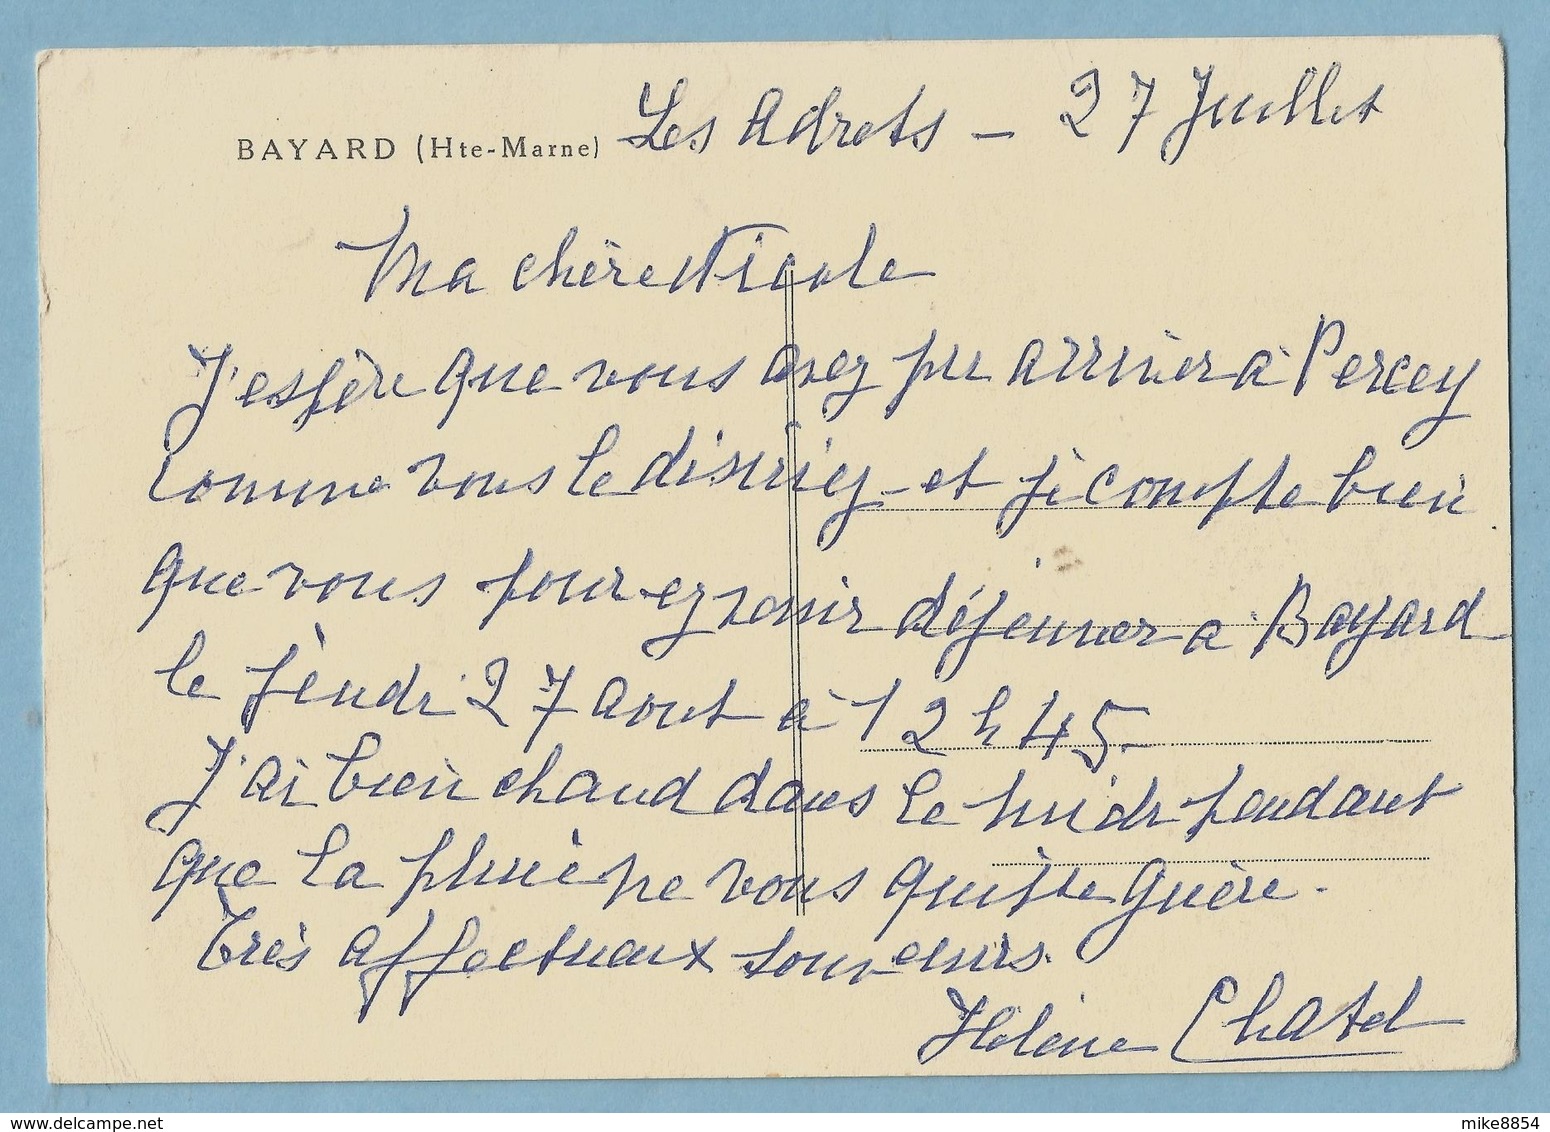 BAYARD (Hte-Marne) Les Adrets - 27 Juillet
Ma chère Nicole
J'espère que vous avez pu arriver à Percey
comme vous le désiriez - et je compte bien
que vous pourrez venir déjeuner à Bayard
le jeudi 27 aout à 12 h 45.
J'ai bien chaud dans le midi pendant
que la pluie ne vous quitte guère.
Très affectueux souvenirs.
Hélène Chatel
mike8854